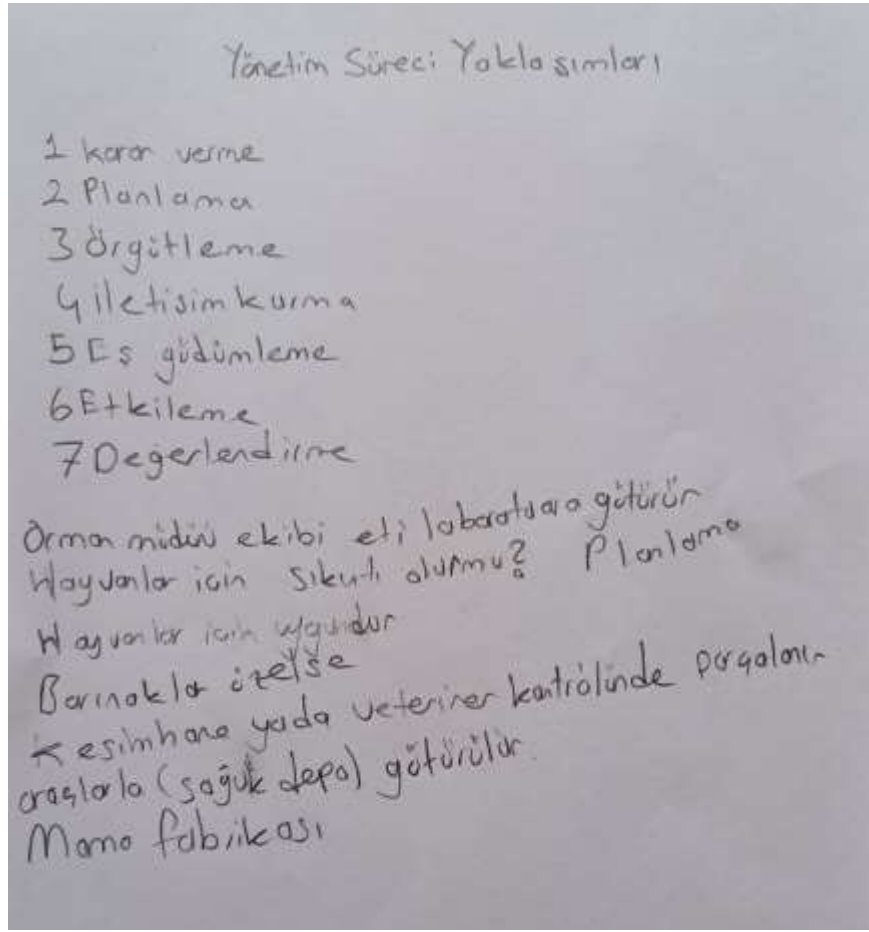 Yönetim Süreci Yaklaşımları
1 karar verme
2 Planlama
3 Örgütleme
4 iletisim kurma
5 Eş güdümleme
6 Etkileme
7 Değerlendirme
Orman müdürü ekibi eti laboratuara götürür
Hayvanlar için sıkıntı olurmu? Planlama
Hayvanlar için uygundur
Barınaklar özelse
Kesimhane yada veteriner kontrolünde parçalanır
araçlarla (soğuk depo) götürülür.
Mama fabrikası